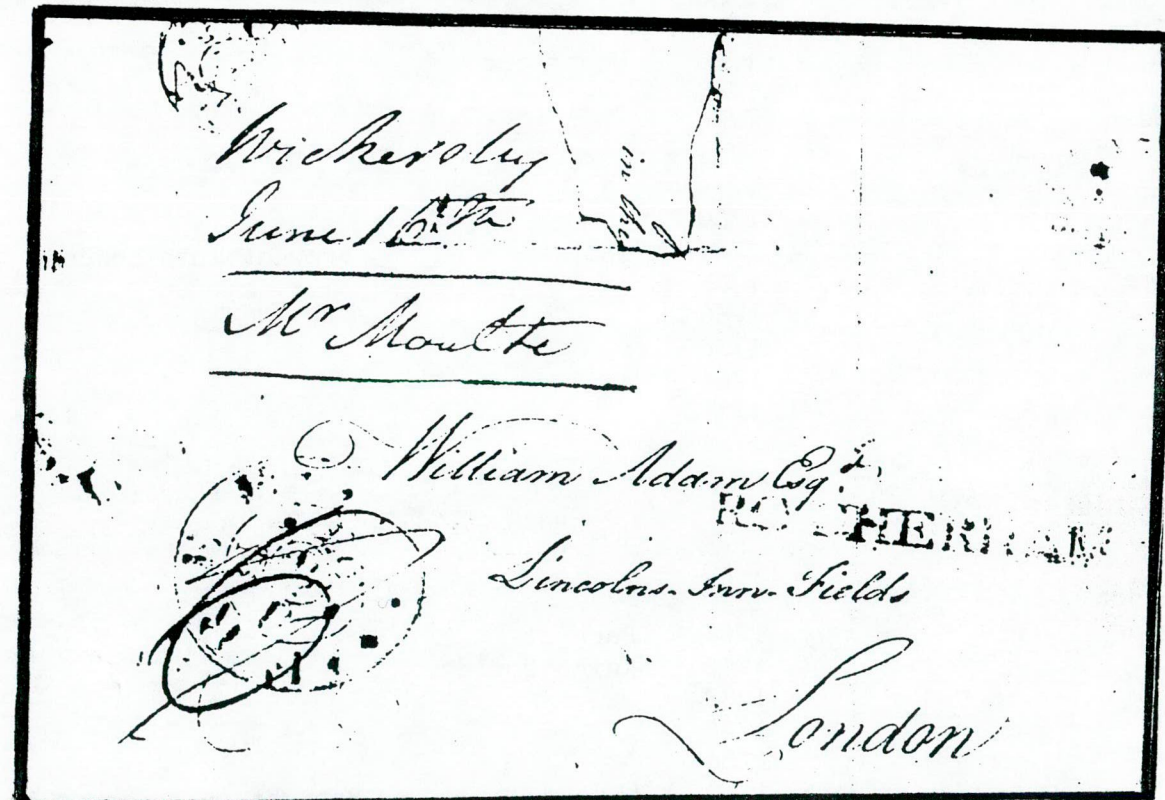 Wickersley
June 16th
in the
Mr Moulte
William Adam Esqr.
ROTHERHAM
Lincolns-Inn-Fields
London